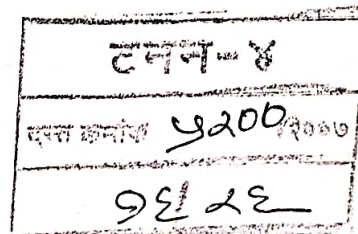 टनन-४
दस्त क्रमांक ५२०० /२००७
१६/२६